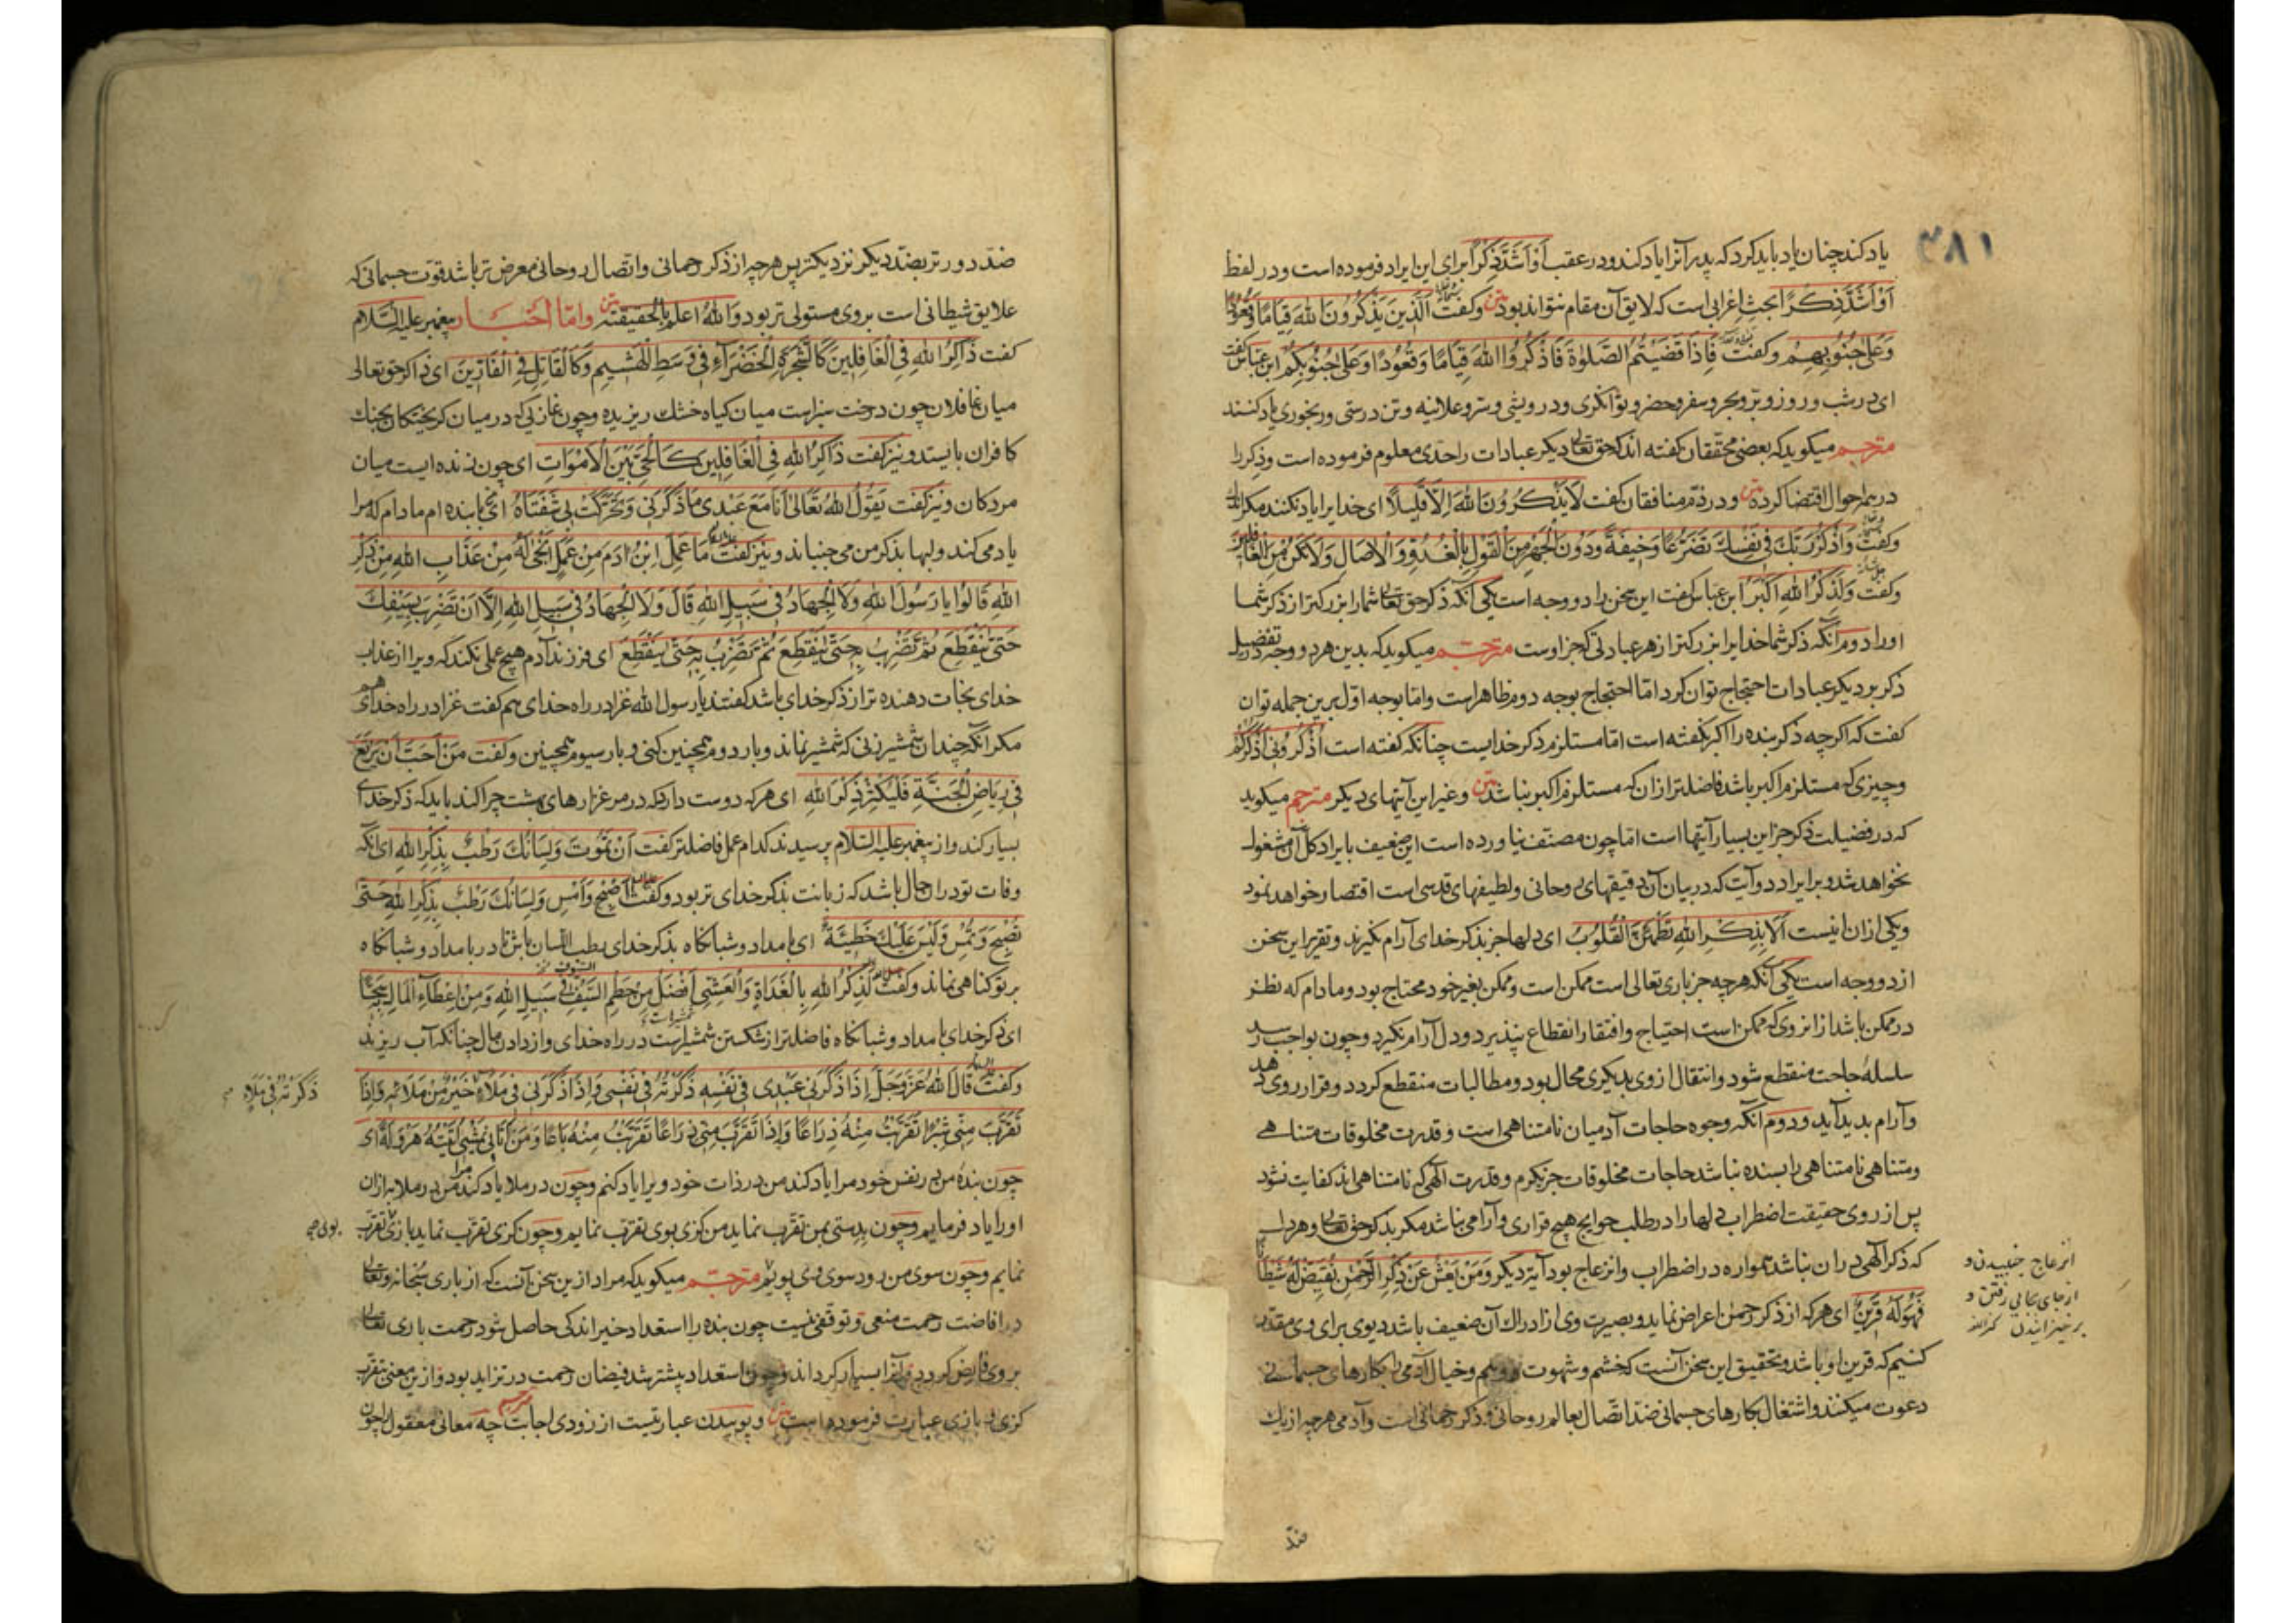 ۳۸۱
یاد کند چنان یاد باید کرد که پدرانرا یاد کند و در عقب أَوْ أَشَدَّ ذِكْرًا برای این ایراد فرموده است و در لفظ
أَوْ أَشَدَّ ذِكْرًا بحث اعرابی است که لایق آن مقام نتواند بود متن وکفت الَّذِينَ يَذْكُرُونَ اللهَ قِيَامًا وَقُعُودًا
وَعَلَى جُنُوبِهِمْ وکفت فَاِذَا قَضَيْتُمُ الصَّلٰوةَ فَاذْكُرُوا اللهَ قِيَامًا وَقُعُودًا وَعَلَى جُنُوبِكُمْ ابن عباس کفت
ای در شب و روز و بر و بحر و سفر و حضر و توانکری و درویشی و سر و علانیه و تن درستی و رنجوری یاد کنند
مترجم میکوید که بعضی محققان کفته اند که حق تعالی دیکر عبادات را حدی معلوم فرموده است و ذکر را
در همه احوال اقتضا کرده متن و در ذم منافقان کفت لَا يَذْكُرُونَ اللهَ اِلَّا قَلِيلًا ای خدایرا یاد نکنند مکر اندک
وکفت وَاذْكُرْ رَبَّكَ فِي نَفْسِكَ تَضَرُّعًا وَخِيفَةً وَدُونَ الْجَهْرِ مِنَ الْقَوْلِ بِالْغُدُوِّ وَالْاٰصَالِ وَلَا تَكُنْ مِنَ الْغَافِلِينَ
وکفت وَلَذِكْرُ اللهِ اَكْبَرُ ابن عباس کفت این سخن را دو وجه است یکی آنکه ذکر حق تعالی شما را بزرکتر از ذکر شما
اورا دوم آنکه ذکر شما خدایرا بزرکتر از هر عبادتی که جز اوست مترجم میکوید که بدین هر دو وجه در تفضیل
ذکر بر دیکر عبادات احتجاج توان کرد اما احتجاج بوجه دوم ظاهر است و اما بوجه اول برین جمله توان
کفت که اکرچه ذکر بنده را اکبر نکفته است اما مستلزم ذکر خدایست چنانکه کفته است اُذْكُرُونِي اَذْكُرْكُمْ
و چیزی که مستلزم اکبر باشد فاضلتر از ان که مستلزم اکبر نباشد متن و غیر این آیتهای دیکر مترجم میکوید
که در فضیلت ذکر جز این بسیار آیتها است اما چون مصنف نیاورده است این ضعیف بایراد کل آن مشغول
نخواهد شد و بر ایراد دو آیت که در بیان آن دقیقهای روحانی و لطیفهای قدسی است اقتصار خواهد نمود
و یکی از ان اینست اَلَا بِذِكْرِ اللهِ تَطْمَئِنُّ الْقُلُوبُ ای دلها جز بذکر خدای آرام نکیرند و تقریر این سخن
از دو وجه است یکی آنکه هرچه جز باری تعالی است ممکن است و ممکن بغیر خود محتاج بود و مادام که نظر
در ممکن باشد از انروی که ممکن است احتیاج و افتقار انقطاع نپذیرد و دل آرام نکیرد و چون بواجب رسد
سلسلهٔ حاجت منقطع شود و انتقال از وی بدیکری محال بود و مطالبات منقطع کردد و قرار روی دهد
و آرام بدید آید و دوم آنکه وجوه حاجات آدمیان نامتناهی است و قدرت مخلوقات متناهی
و متناهی نامتناهی را بسنده نباشد حاجات مخلوقات جز بکرم و قدرت الهی که نامتناهی اند کفایت نشود
پس از روی حقیقت اضطراب دلها را در طلب حوایج هیچ قراری و آرامی نباشد مکر بذکر حق تعالی و هر دل
که ذکر الهی در ان نباشد همواره در اضطراب و انزعاج بود آیة دیکر وَمَنْ يَعْشُ عَنْ ذِكْرِ الرَّحْمٰنِ نُقَيِّضْ لَهُ شَيْطَانًا
فَهُوَ لَهُ قَرِينٌ ای هرکه از ذکر رحمن اعراض نماید و بصیرت وی از ادراک آن ضعیف باشد دیوی برای وی مقدر
کنیم که قرین او باشد و تحقیق این سخن آنست که خشم و شهوت و وهم و خیال آدمی را بکارهای جسمانی
دعوت میکنند و اشتغال بکارهای جسمانی ضد اتصال بعالم روحانی و ذکر رحمانی است و آدمی هرچه از یک
انزعاج جنبیدن و
از جای بجایی رفتن و
برخیزانیدن کنز
ضد
ضد دورتر بضد دیکر نزدیکتر پس هرچه از ذکر رحمانی و اتصال روحانی معرض تر باشد قوت جسمانی که
علایق شیطانی است بروی مستولی تر بود وَاللهُ اَعْلَمُ بِالْحَقِيقَةِ متن واما اخبار پیغمبر علیه السلام
کفت ذَاكِرُ اللهِ فِي الْغَافِلِينَ كَالشَّجَرَةِ الْخَضْرَاءِ فِي وَسَطِ الْهَشِيمِ وَكَالْقَاتِلِ فِي الْفَارِّينَ ای ذاکر حق تعالی
میان غافلان چون درخت سبز است میان کیاه خشک ریزیده و چون غازیی که در میان کریختکان بجنک
کافران بایستد و نیز کفت ذَاكِرُ اللهِ فِي الْغَافِلِينَ كَالْحَيِّ بَيْنَ الْاَمْوَاتِ ای چون زنده ایست میان
مردکان و نیز کفت يَقُولُ اللهُ تَعَالٰى اَنَا مَعَ عَبْدِي مَا ذَكَرَنِي وَتَحَرَّكَتْ بِي شَفَتَاهُ ای با بنده ام مادام که مرا
یاد می کند و لبها بذکر من می جنباند و نیز کفت مَا عَمِلَ ابْنُ اٰدَمَ مِنْ عَمَلٍ اَنْجٰى لَهُ مِنْ عَذَابِ اللهِ مِنْ ذِكْرِ
اللهِ قَالُوا يَا رَسُولَ اللهِ وَلَا الْجِهَادُ فِي سَبِيلِ اللهِ قَالَ وَلَا الْجِهَادُ فِي سَبِيلِ اللهِ اِلَّا اَنْ تَضْرِبَ بِسَيْفِكَ
حَتّٰى يَنْقَطِعَ ثُمَّ تَضْرِبَ بِهِ حَتّٰى يَنْقَطِعَ ثُمَّ تَضْرِبَ بِهِ حَتّٰى يَنْقَطِعَ ای فرزند آدم هیچ عملی نکند که ویرا از عذاب
خدای نجات دهنده تر از ذکر خدای باشد کفتند یا رسول الله غزا در راه خدای هم کفت غزا در راه خدای هم
مکر آنکه چندان شمشیر زنی که شمشیر نماند و بار دوم همچنین کنی و بار سیوم همچنین وکفت مَنْ اَحَبَّ اَنْ يَرْتَعَ
فِي رِيَاضِ الْجَنَّةِ فَلْيُكْثِرْ ذِكْرَ اللهِ ای هرکه دوست دارد که در مرغزارهای بهشت چرا کند باید که ذکر خدای
بسیار کند و از پیغمبر علیه السلام پرسیدند کدام عمل فاضلتر کفت اَنْ تَمُوتَ وَلِسَانُكَ رَطْبٌ بِذِكْرِ اللهِ ای آنکه
وفات تو در ان حال باشد که زبانت بذکر خدای تر بود وکفت اَصْبِحْ وَاَمْسِ وَلِسَانُكَ رَطْبٌ بِذِكْرِ اللهِ حَتّٰى
تُصْبِحَ وَتُمْسِيَ وَلَيْسَ عَلَيْكَ خَطِيئَةٌ ای بامداد و شبانکاه بذکر خدای رطب اللسان باش تا در بامداد و شبانکاه
بر تو کناهی نماند وکفت لَذِكْرُ اللهِ بِالْغَدَاةِ وَالْعَشِيِّ اَفْضَلُ مِنْ حَطْمِ السَّيْفِ فِي سَبِيلِ اللهِ وَمِنْ اِعْطَاءِ الْمَالِ سَحًّا
ای ذکر خدای بامداد و شبانکاه فاضلتر از شکستن شمشیر است در راه خدای و از دادن مال چنانکه آب ریزند
وکفت قَالَ اللهُ عَزَّ وَجَلَّ اِذَا ذَكَرَنِي عَبْدِي فِي نَفْسِهِ ذَكَرْتُهُ فِي نَفْسِي وَاِذَا ذَكَرَنِي فِي مَلَاءٍ خَيْرٍ مِنْ مَلَائِهِ وَاِذَا
ذَكَرْتُهُ فِي مَلَاءٍ
تَقَرَّبَ مِنِّي شِبْرًا تَقَرَّبْتُ مِنْهُ ذِرَاعًا وَاِذَا تَقَرَّبَ مِنِّي ذِرَاعًا تَقَرَّبْتُ مِنْهُ بَاعًا وَمَنْ اَتَانِي يَمْشِي اَتَيْتُهُ هَرْوَلَةً ای
چون بندهٔ من در نفس خود مرا یاد کند من در ذات خود ویرا یاد کنم و چون در ملا مرا یاد کند من در ملا به از ان
اورا یاد فرمایم و چون بدستی بمن تقرب نماید من کزی بوی تقرب نمایم و چون کزی تقرب نماید بازی تقرب
نمایم و چون سوی من رود سوی وی پویم مترجم میکوید که مراد ازین سخن آنست که از باری سبحانه و تعالی
در افاضت رحمت منعی و توقفی نیست چون بنده را استعداد خیر اندکی حاصل شود رحمت باری تعالی
بروی فایض کردد و آنرا بسیار کرداند و چون استعداد بیشتر شد فیضان رحمت در تزاید بود و ازین معنی بتقرب
کزی و بازی عبارت فرموده است متن و پوییدن عبارتیست از زودی اجابت مترجم چه معانی معقول را چون